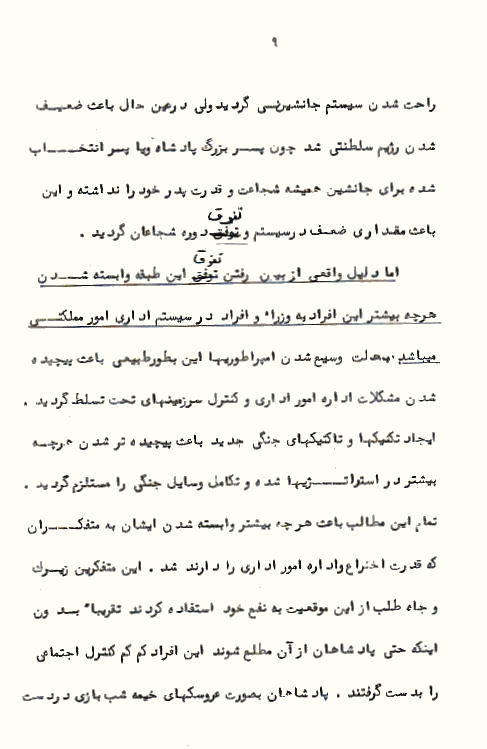 ۹
راحت شدن سیستم جانشین‌نسی گردید ولی در عین حال باعث ضعیف
شدن رژیم سلطنتی شد چون پسر بزرگ پادشاه ویا پسر انتخاب
شده برای جانشین همیشه شجاعت و قدرت پدر خود را نداشته و این
تفرق
باعث مقداری ضعف در سیستم و توفق دوره شجاعان گردید .
تفرق
اما دلیل واقعی از بین رفتن توفق این طبقه وابسته شدن
هرچه بیشتر این افراد به وزراء و افراد در سیستم اداری امور مملکتی
میباشد . بعلت وسیع شدن امپراطوریها این بطور طبیعی باعث پیچیده
شدن مشکلات اداره امور اداری و کنترل سرزمینهای تحت تسلط گردید .
ایجاد تکنیکها و تاکتیکهای جنگی جدید باعث پیچیده تر شدن هرچه
بیشتر در استراتژیها شده و تکامل وسایل جنگی را مستلزم گردید .
تمام این مطالب باعث هرچه بیشتر وابسته شدن ایشان به متفکران
که قدرت اختراع واداره امور اداری را دارند شد . این متفکرین زیرک
و جاه طلب از این موقعیت به نفع خود استفاده کردند تقریباً بدون
اینکه حتی پادشاهان از آن مطلع شوند این افراد کم کم کنترل اجتماعی
را بدست گرفتند . پادشاهان بصورت عروسکهای خیمه شب بازی در دست